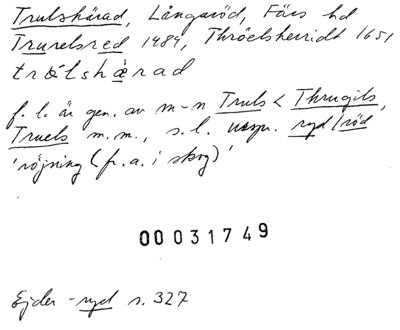 Trulshärad, Långaröd, Färs hd
Truvelsred 1484, Thröelsherridt 1651
trǿlshærad
f. l. är gen. av m-n Truls < Thrugils,
Truels m.m., s. l. urspr. ryd/röd
'röjning (fr. a. i skog)'
00031749
Ejder -ryd s. 327